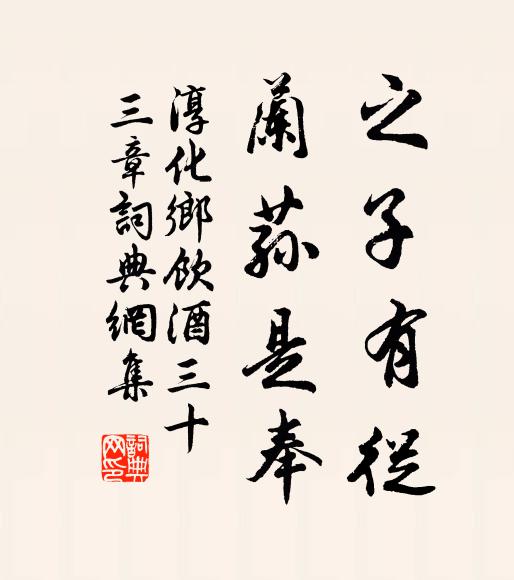 之子有從
蘭蓀是奉
淳化鄉飲酒三十
三章詞典網集
詞典网印